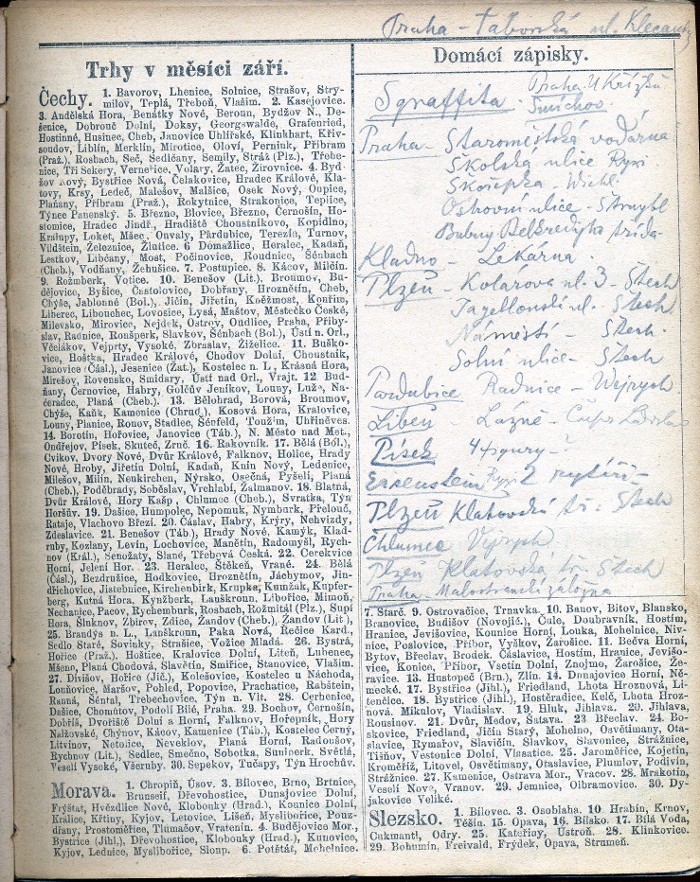 Praha - táborská ul. Klecandy
Trhy v měsíci září.
Čechy. 1. Bavorov, Lhenice, Solnice, Strašov, Stry-
milov, Teplá, Třeboň, Vlašim. 2. Kasejovice.
3. Andělská Hora, Benátky Nové, Beroun, Bydžov N., De-
šenice, Dobrouč Dolní, Doksy, Georgswalde, Grafenried,
Hostinné, Husinec, Cheb, Janovice Uhlířské, Klinkhart, Křiv-
soudov, Liblín, Merklín, Mirotice, Oloví, Pernink, Příbram
(Praž.), Rosbach, Seč, Sedlčany, Semily, Stráž (Plz.), Třebe-
nice, Tři Sekery, Verneřice, Volary, Žatec, Žirovnice. 4. Byd-
žov Nový, Bystřice Nová, Čelakovice, Hradec Králové, Kla-
tovy, Krsy, Ledeč, Malešov, Malšice, Osek Nový, Oupice,
Plaňany, Příbram (Praž.), Rokytnice, Strakonice, Teplice,
Týnec Panenský. 5. Březno, Blovice, Březno, Černošín, Ho-
stomice, Hradec Jindř., Hradiště Choustníkovo, Kopidlno,
Kralupy, Loket, Mšec, Onvaly, Pardubice, Terezín, Turnov,
Vildštein, Železnice, Žlutice. 6 Domažlice, Heralec, Kadaň,
Lestkov, Libčany, Most, Počinovice, Roudnice, Sénbach
(Cheb.), Vodňany, Žehušice. 7. Postupice. 8. Kácov, Milčín.
9. Rožmberk, Votice. 10. Benešov (Lit.), Broumov, Bu-
dějovice, Byšice, Častolovice, Dobřany, Hroznětín, Cheb,
Chýše, Jablonné (Bol.), Jičín, Jiřetín, Koěžmost, Konřim,
Liberec, Libouchec, Lovosice, Lysá, Maštov, Městečko České,
Milevsko, Mirovice, Nejdek, Ostrov, Oudlice, Praha, Přiby-
slav, Radnice, Ronšperk, Slavkov, Šénbach (Bol.), Ústí n. Orl.,
Včelákov, Vejprty, Vysoké, Zbraslav, Žiželice. 11. Buško-
vice, Hoštka, Hradec Králové, Chodov Dolní, Choustník,
Janovice (Čásl.), Jesenice (Žat.), Kostelec n. L., Krásná Hora,
Mirešov, Rovensko, Smidary, Ústí nad Orl., Vrajt. 12 Bud-
ňany, Černovice, Habry, Golčův Jeníkov, Louny, Luž, Na-
čeradec, Planá (Cheb.). 13. Bělohrad, Borová, Broumov,
Chýše, Kaňk, Kamenice (Chrud.), Kosova Hora, Kralovice,
Louny, Planice, Ronov, Stadlec, Šénfeld, Toužim, Uhříněves.
14. Borotín, Hořovice, Janovice (Táb.), N. Město nad Met.,
Ondřejov, Písek, Skuteč, Zruč. 16. Rakovník. 17. Bělá (Bol.),
Cvikov, Dvory Nové, Dvůr Králové, Falknov, Holice, Hrady
Nové, Hroby, Jiřetín Dolní, Kadaň, Knín Nový, Ledenice,
Milešov, Milín, Neunkirchen, Nýrsko, Osečná, Pyšeli, Planá
(Cheb.), Poděbrady, Soběslav, Vrchlabí, Žalmanov. 18. Blatná,
Dvůr Králové, Hory Kašp., Chlumec (Cheb.), Svratka, Týn
Horšův. 19. Dašice, Humpolec, Nepomuk, Nymburk, Přelouč,
Rataje, Vlachovo Březí. 20. Čáslav, Habry, Krýry, Nehvizdy,
Zdeslavice. 21. Benešov (Táb.), Hrady Nové, Kamýk, Klad-
ruby, Kozlany, Levín, Lochovice, Manětín, Radomyšl, Rych-
nov (Král.), Senožaty, Slané, Třebová Česká. 22. Cerekvice
Horní, Jelení Hor. 23. Heralec, Štěkeň, Vrané. 24. Bělá
(Čásl.), Bezdružice, Hodkovice, Hroznětín, Jáchymov, Jin-
dřichovice, Jistebnice, Kirchenbirk, Krupka, Kumžak, Kupfer-
berg, Kutná Hora, Kynžberk, Lanškroun, Libořice, Mimoň,
Nechanice, Pacov, Rychemburk, Rosbach, Rožmitál (Plz.), Supí
Hora, Šluknov, Zbirov, Zdice, Žandov (Cheb.), Žandov (Lit.),
25. Brandýs n. L., Lanškroun, Paka Nová, Řečice Kard.,
Sedlo Staré, Sovinky, Strašice, Vožice Mladá. 26. Bystrá,
Hořice (Praž.), Hoštice, Kralovice Dolní, Liteň, Lubenec,
Mšeno, Planá Chodová, Slavětín, Smiřice, Stanovice, Vlašim.
27. Divišov, Hořice (Jič.), Kolešovice, Kostelec u Náchoda,
Louňovice, Maršov, Pohled, Popovice, Prachatice, Rabštein,
Ranná, Šéntal, Třebechovice, Týn n. Vlt. 28. Cerhenice,
Dašice, Chomútov, Podolí Bílé, Praha. 29. Bochov, Černošín,
Dobříš, Dvořiště Dolní a Horní, Falknov, Hořepník, Hory
Nalžovské, Chýnov, Kácov, Kamenice (Táb.), Kostelec Černý,
Litvínov, Netolice, Neveklov, Planá Horní, Radoušov,
Rychnov (Lit.), Sedlec, Smečno, Sobotka, Sunperk, Světlá,
Veselí Vysoké, Všeruby. 30. Sepekov, Tučapy, Týn Hrochův.
Morava. 1. Chropiň, Úsov. 3. Bílovec, Brno, Brtnice,
Brunseif, Dřevohostice, Dunajovice Dolní,
Fryštat, Hvězdlice Nové, Klobouky (Hrad.), Kounice Dolní,
Králice, Křtiny, Kyjov, Letovice, Líšeň, Myslibořice, Pouz-
dřany, Prostoměřice, Tlumačov, Vratenín. 4. Budějovice Mor.,
Bystřice (Jihl.), Dřevohostice, Klobouky (Hrad.), Kunovice,
Kyjov, Lednice, Myslibořice, Sloup. 6. Potštát, Mohelnice.
Domácí zápisky.
Sgraffita. Praha - U Křížků
Smíchov.
Praha - Staroměstská vodárna
Školská ulice
Skořepka
Ostrovní ulice -
Bubny Belkrediho třída
Kladno - Lékárna
Plzeň - Kolárova ul. 3 - Štech
Jagellonská ul. - Štech
Náměstí - Štech.
Solní ulice - Štech
Pardubice Radnice - Wejrych
Libeň - Lázně -
Písek 4 figury -
2 rytíři -
Plzeň Klatovská tř. Štech
Chlumec Vejrych
Plzeň Klatovská tr. Štech
Praha - Malostranská záložna
7. Starč. 9. Ostrovačice, Trnavka. 10. Banov, Bítov, Blansko,
Branovice, Budišov (Novojič.), Čule, Doubravník, Hostím,
Hranice, Jevišovice, Kounice Horní, Louka, Mohelnice, Niv-
nice, Poslovice, Příbor, Vyškov, Žarošice. 11. Bečva Horní,
Bytov, Břeclav, Brodek, Čáslavice, Hostím, Hranice, Jevišo-
vice, Konice, Příbor, Vsetín Dolní, Znojmo, Žarošice, Že-
ravice. 13. Hustopeč (Brn.), Zlín. 14. Dunajovice Horní, Ně-
mecké. 17. Bystřice (Jihl.), Friedland, Lhota Hroznová, Li-
tenčice. 18. Bystřice (Jihl.), Hostěradice, Kelč, Lhota Hroz-
nová, Mikulov, Vladislav. 19. Hluk, Jihlava. 20. Jihlava,
Rousínov. 21. Dvůr, Medov, Šatava. 23. Břeclav. 24. Bo-
skovice, Friedland, Jičín Starý, Mohelno, Osvětimany, Ota-
slavice, Rymařov, Slavičín, Slavkov, Slavonice, Strážnice,
Tišňov, Vestonice Dolní, Vlasatice. 25. Jaroměřice, Kojetín,
Kroměříž, Litovel, Osvětimany, Otaslavice, Plumlov, Podivín,
Strážnice. 27. Kamenice, Ostrava Mor., Vracov. 28. Mrakotín,
Veselí Nové, Vranov. 29. Jemnice, Olbramovice. 30. Dy-
jakovice Veliké.
Slezsko. 1. Bílovec. 3. Osoblaha. 10 Hrabín, Krnov,
Těšín. 15. Opava. 16. Bílsko. 17. Bílá Voda,
Cukmantl, Odry. 25. Kateřiny, Ustroň. 28. Klinkovice.
29. Bohumín, Freivald, Frýdek, Opava, Strumeň.